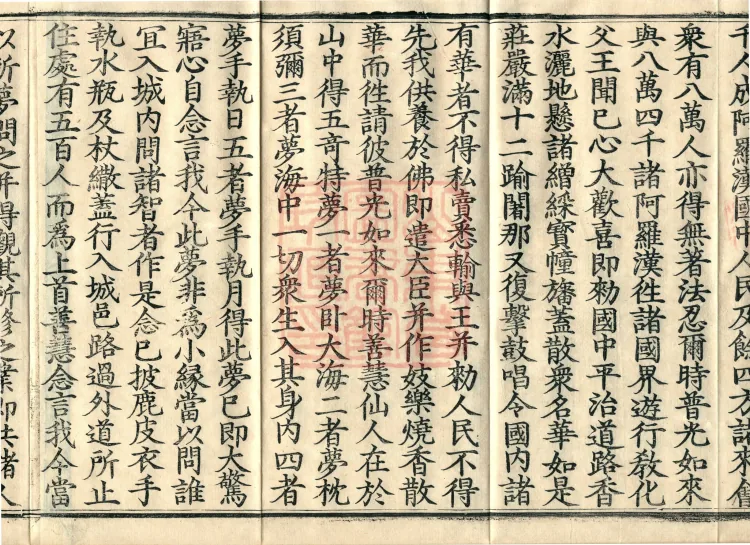 千人成阿羅漢國中人民及餘四方諸來會
衆有八萬人亦得無著法忍爾時普光如來
與八萬四千諸阿羅漢徃諸國界遊行敎化
父王聞已心大歡喜即勑國中平治道路香
水灑地懸諸繒綵寶幢旛蓋散衆名華如是
莊嚴滿十二踰闍那又復擊鼓唱令國内諸
有華者不得私賣悉輸與王并勑人民不得
先我供養於佛即遣大臣并作妓樂燒香散
華而徃請彼普光如來爾時善慧仙人在於
山中得五奇特夢一者夢卧大海二者夢枕
須彌三者夢海中一切衆生入其身内四者
夢手執日五者夢手執月得此夢已即大驚
寤心自念言我今此夢非爲小緣當以問誰
宜入城内問諸智者作是念已披鹿皮衣手
執水瓶及杖繖蓋行入城邑路過外道所止
住處有五百人而爲上首善慧念言我今當
以所夢問之并得觀其所修之業即共諸人